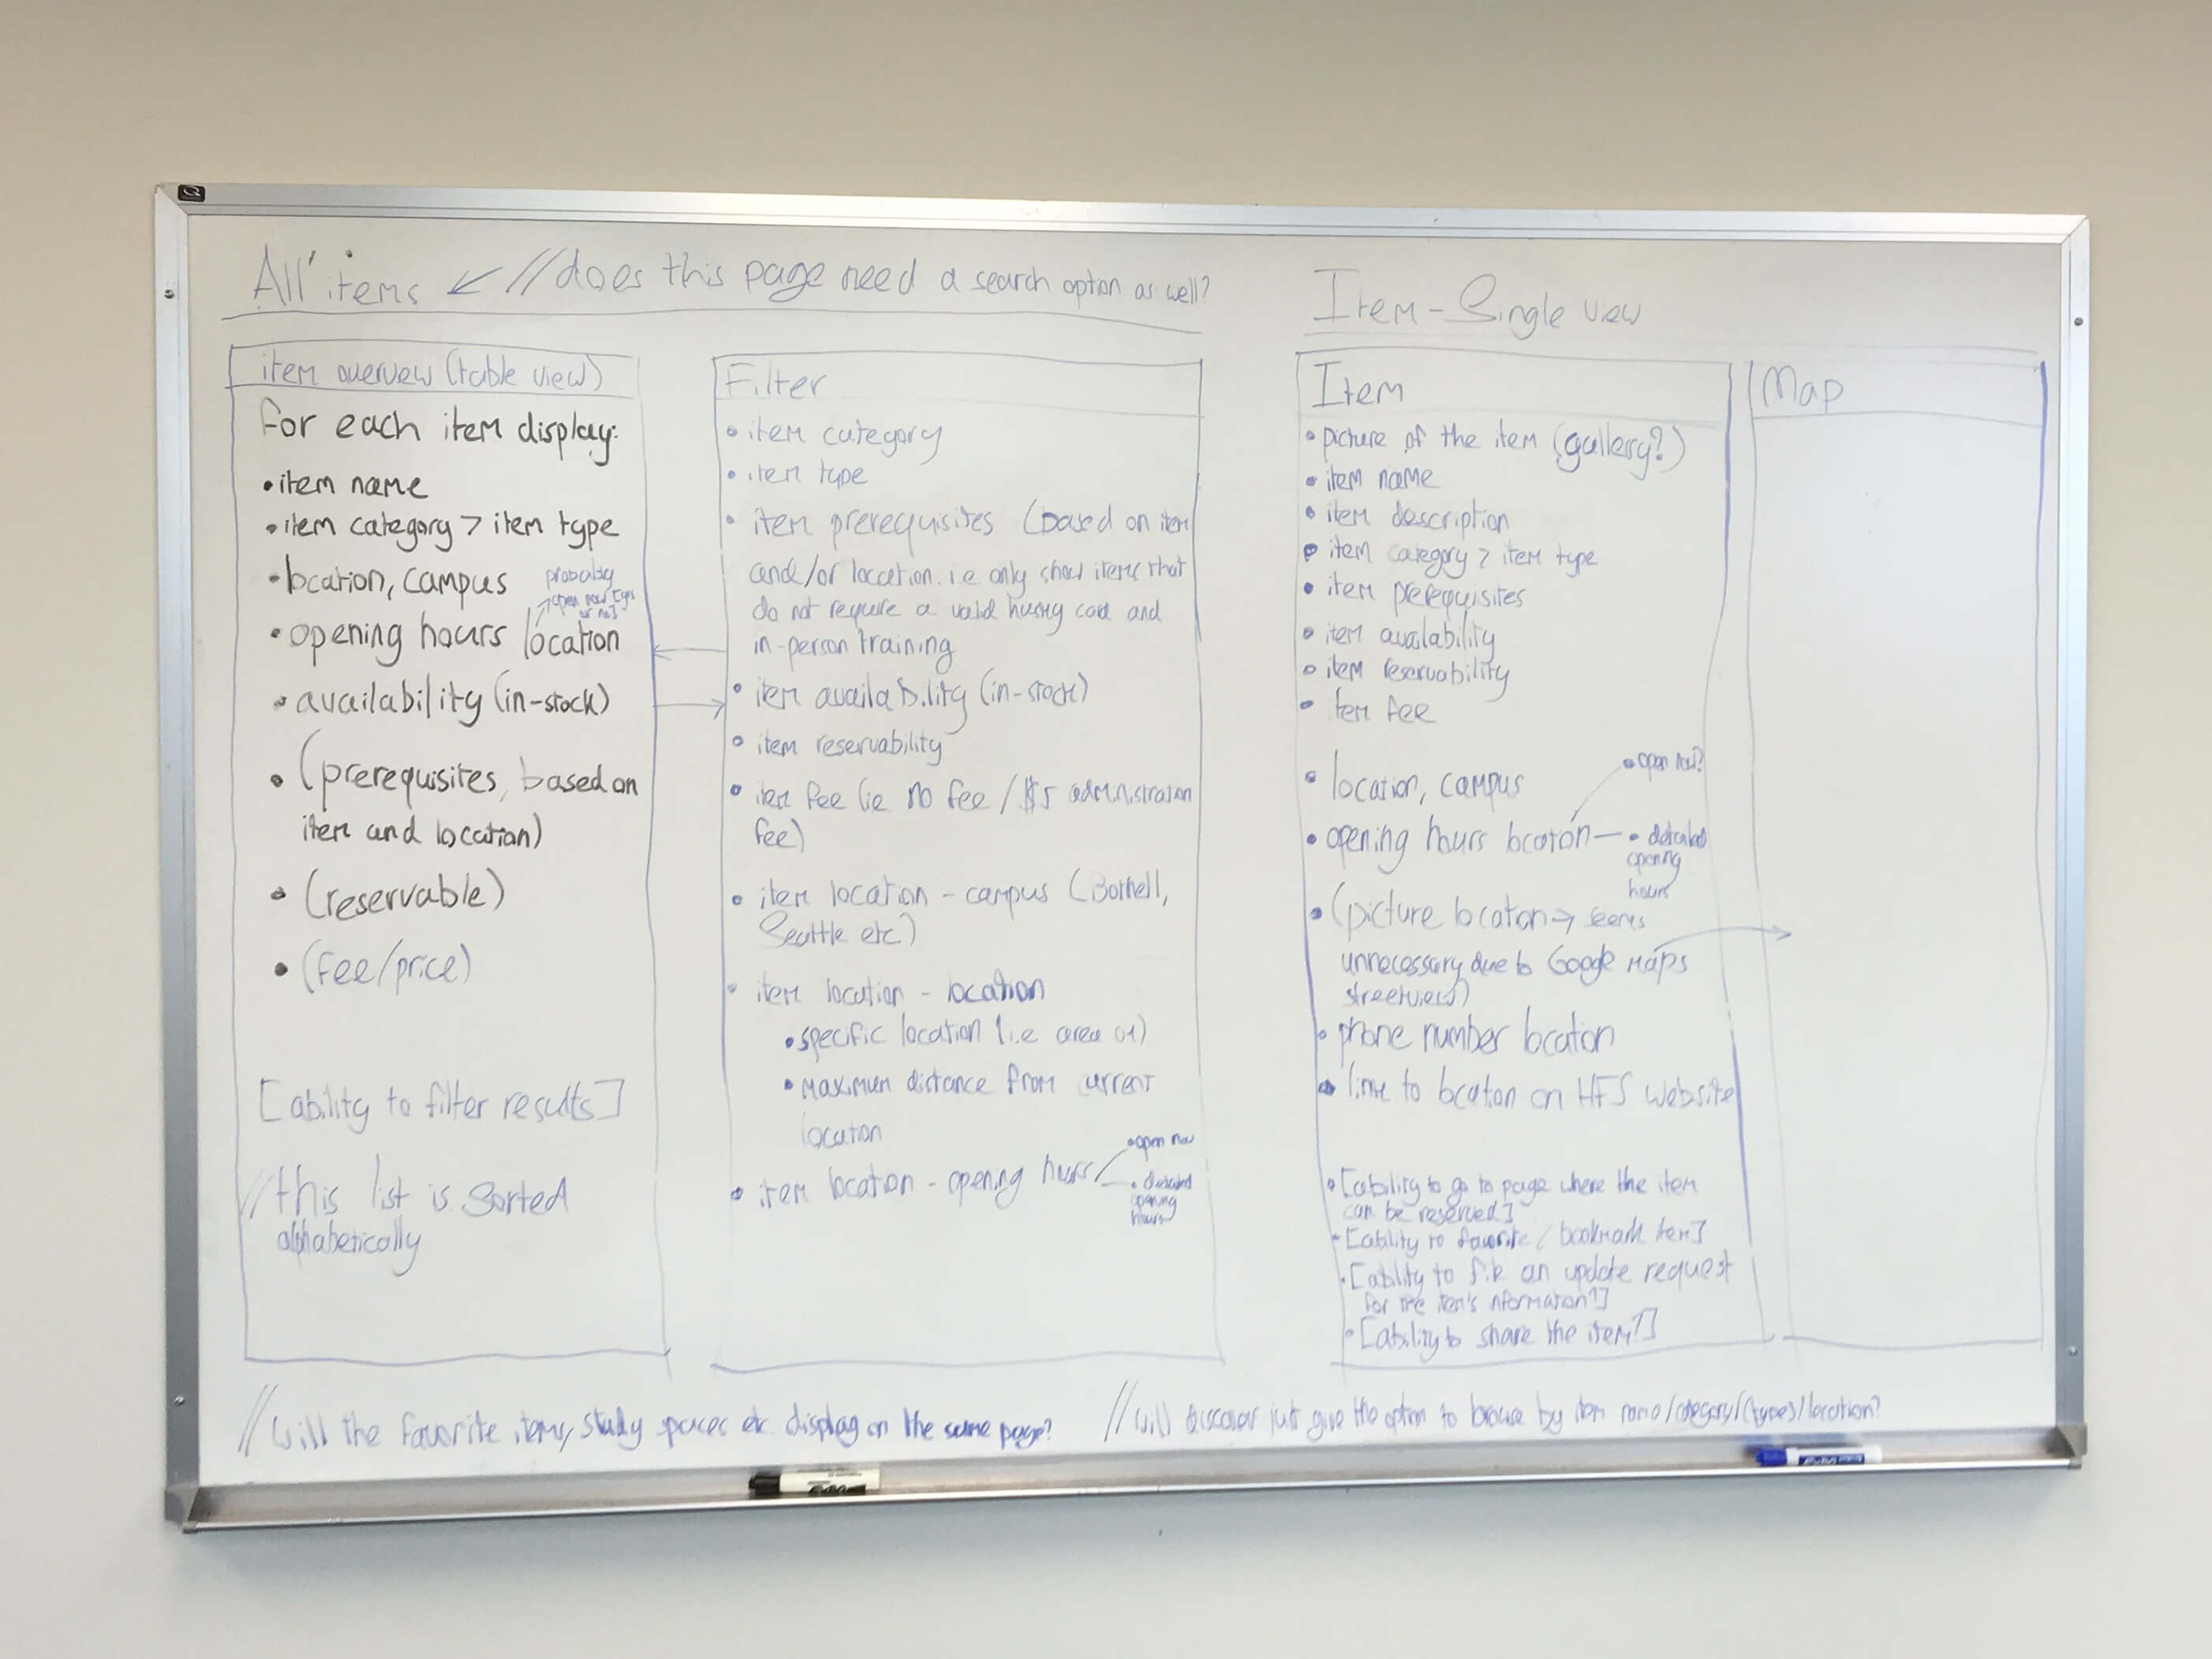 All items ↙ //does this page need a search option as well?
item overview (table view)
for each item display:
• item name
• item category > item type
• location, campus
probably
open now [yes
or no]
• opening hours location
• availability (in-stock)
• (prerequisites, based on
item and location)
• (reservable)
• (fee/price)
[ability to filter results]
//this list is sorted
alphabetically
Filter
• item category
• item type
• item prerequisites (based on item
and/or location. i.e only show items that
do not require a valid husky card and
in-person training
• item availability (in-stock)
• item reservability
• item fee (ie no fee / $5 administration
fee)
• item location - campus (Bothell,
Seattle etc.)
• item location - location
• specific location (i.e area 01)
• maximum distance from current
location
• item location - opening hours
• open now
• detailed
opening
hours
Item - Single view
Item
• picture of the item (gallery?)
• item name
• item description
• item category > item type
• item prerequisites
• item availability
• item reservability
• item fee
• location, campus
• open now?
• opening hours location
• detailed
opening
hours
• (picture location → seems
unnecessary due to Google Maps
streetview)
• phone number location
• link to location on HFS website
• [ability to go to page where the item
can be reserved]
• [ability to favorite / bookmark item]
• [ability to file an update request
for the item's information?]
• [ability to share the item?]
Map
//will the favorite items, study spaces etc. display on the same page?
//will discover just give the option to browse by item name/category/(types)/location?